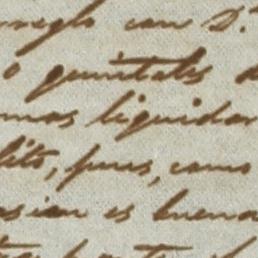 arreglo con D.
o quintales d
mas liquidar
lito, pues, como
asion es buena